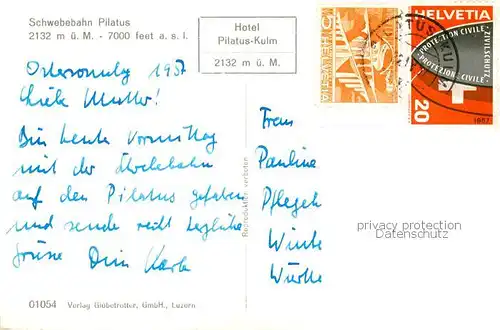 Schwebebahn Pilatus
2132 m ü. M. - 7000 feet a. s. l.
Hotel
Pilatus-Kulm
2132 m ü. M.
5
HELVETIA
HELVETIA
PROTECTION CIVILE
PROTEZIONE CIVILE
20
1957
PILATUS-KULM
Ostersonntag 1957
Liebe Mutter!
Bin heute Vormittag
mit der Schwebebahn
auf den Pilatus gefahren
und sende recht herzliche
Grüsse Dein Karle
Frau
Pauline
Pflegeh
Reproduktion verboten
privacy protection
Datenschutz
01054 Verlag Globetrotter, GmbH., Luzern